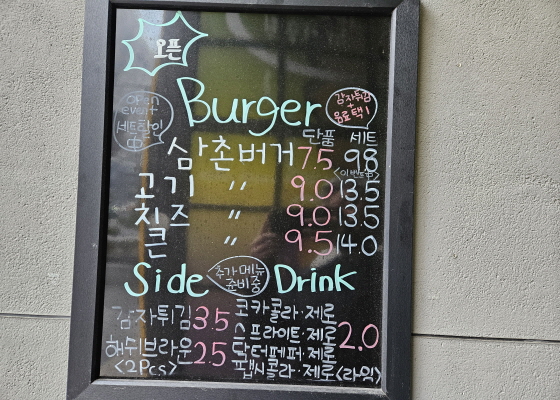 오픈
open
event
세트할인
中
Burger
감자튀김
+
음료택1
단품 세트
삼촌버거 7.5 9.8
<이벤트中>
고기 〃 9.0 13.5
치즈 〃 9.0 13.5
큰 〃 9.5 14.0
Side
추가메뉴
준비중
Drink
감자튀김 3.5
해쉬브라운 2.5
<2Pcs>
코카콜라·제로
스프라이트·제로
닥터페퍼·제로
펩시콜라·제로<라임>
2.0